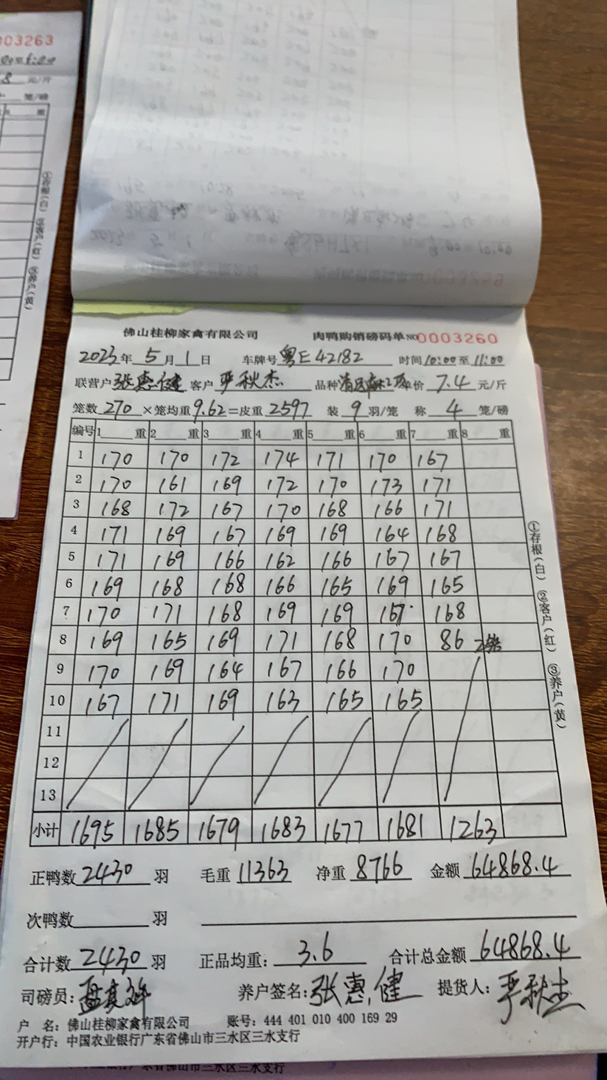 0003263
元/斤
笼/磅
重
①存根(白)②客户(红)③养户(黄)
佛山桂柳家禽有限公司 肉鸭购销磅码单 NO 0003260
2023年 5月 1日 车牌号 粤E42182 时间 10:00至 11:00
联营户 张惠健 客户 严秋杰 品种 单价 7.4 元/斤
笼数 270 ×笼均重 9.62 =皮重 2597 装 9 羽/笼 称 4 笼/磅
编号 1 重 2 重 3 重 4 重 5 重 6 重 7 重 8 重
1 170 170 172 174 171 170 167
2 170 161 169 172 170 173 171
3 168 172 167 170 168 166 171
4 171 169 167 169 169 164 168
5 171 169 166 162 166 167 167
6 169 168 168 166 165 169 165
7 170 171 168 169 169 167 168
8 169 165 169 171 168 170 86 2笼
9 170 169 164 167 166 170
10 167 171 169 163 165 165
11
12
13
小计 1695 1685 1679 1683 1677 1681 1263
①存根(白) ②客户(红) ③养户(黄)
正鸭数 2430 羽 毛重 11363 净重 8766 金额 64868.4
次鸭数 羽
合计数 2430 羽 正品均重: 3.6 合计总金额 64868.4
司磅员: 养户签名: 张惠健 提货人: 严秋杰
户 名: 佛山桂柳家禽有限公司 账号: 444 401 010 400 169 29
开户行: 中国农业银行广东省佛山市三水区三水支行